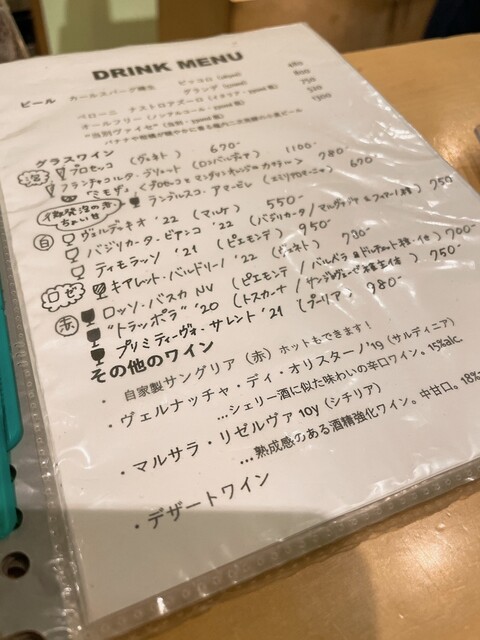 DRINK MENU
ビール カールスバーグ樽生 ピッコロ 480
グランデ 800
ペローニ ナストロアズーロ (イタリア・330ml 瓶) 750
オールフリー (ノンアルコール・) 520
"当別ヴァイゼ" 1300
バナナや柑橘が穏やかに香る瓶内二次発酵の小麦ビール
グラスワイン
泡 プロセッコ (ヴェネト) 670-
フランチャコルタ・ブリュット (ロンバルディア) 1100-
"ミモザ" (プロセッコとマンダリンオレンジの) 780-
微発泡の赤、ちょい甘 ランブルスコ・アマービレ (エミリアロマーニャ) 670
白 ヴェルディッキオ '22 (マルケ) 550-
バジリカータ・ビアンコ '22 (バジリカータ/マルヴァジア&フィアーノ種) 750
ティモラッソ '21 (ピエモンテ) 950
ロゼ キアレット・バルドリーノ '22 (ヴェネト) 730-
赤 ロッソ・バスカ NV (ピエモンテ/バルベーラ・ドルチェット種・他) 700-
"トラッポラ" '20 (トスカーナ/サンジョヴェーゼ種主体) 750-
プリミティーヴォ・サレント '21 (プーリア) 980-
その他のワイン
・自家製サングリア (赤) ホットもできます!
・ヴェルナッチャ・ディ・オリスターノ'19 (サルディニア)
…シェリー酒に似た味わいの辛口ワイン。15%alc.
・マルサラ・リゼルヴァ 10y (シチリア)
…熟成感のある酒精強化ワイン。中甘口。18%
・デザートワイン